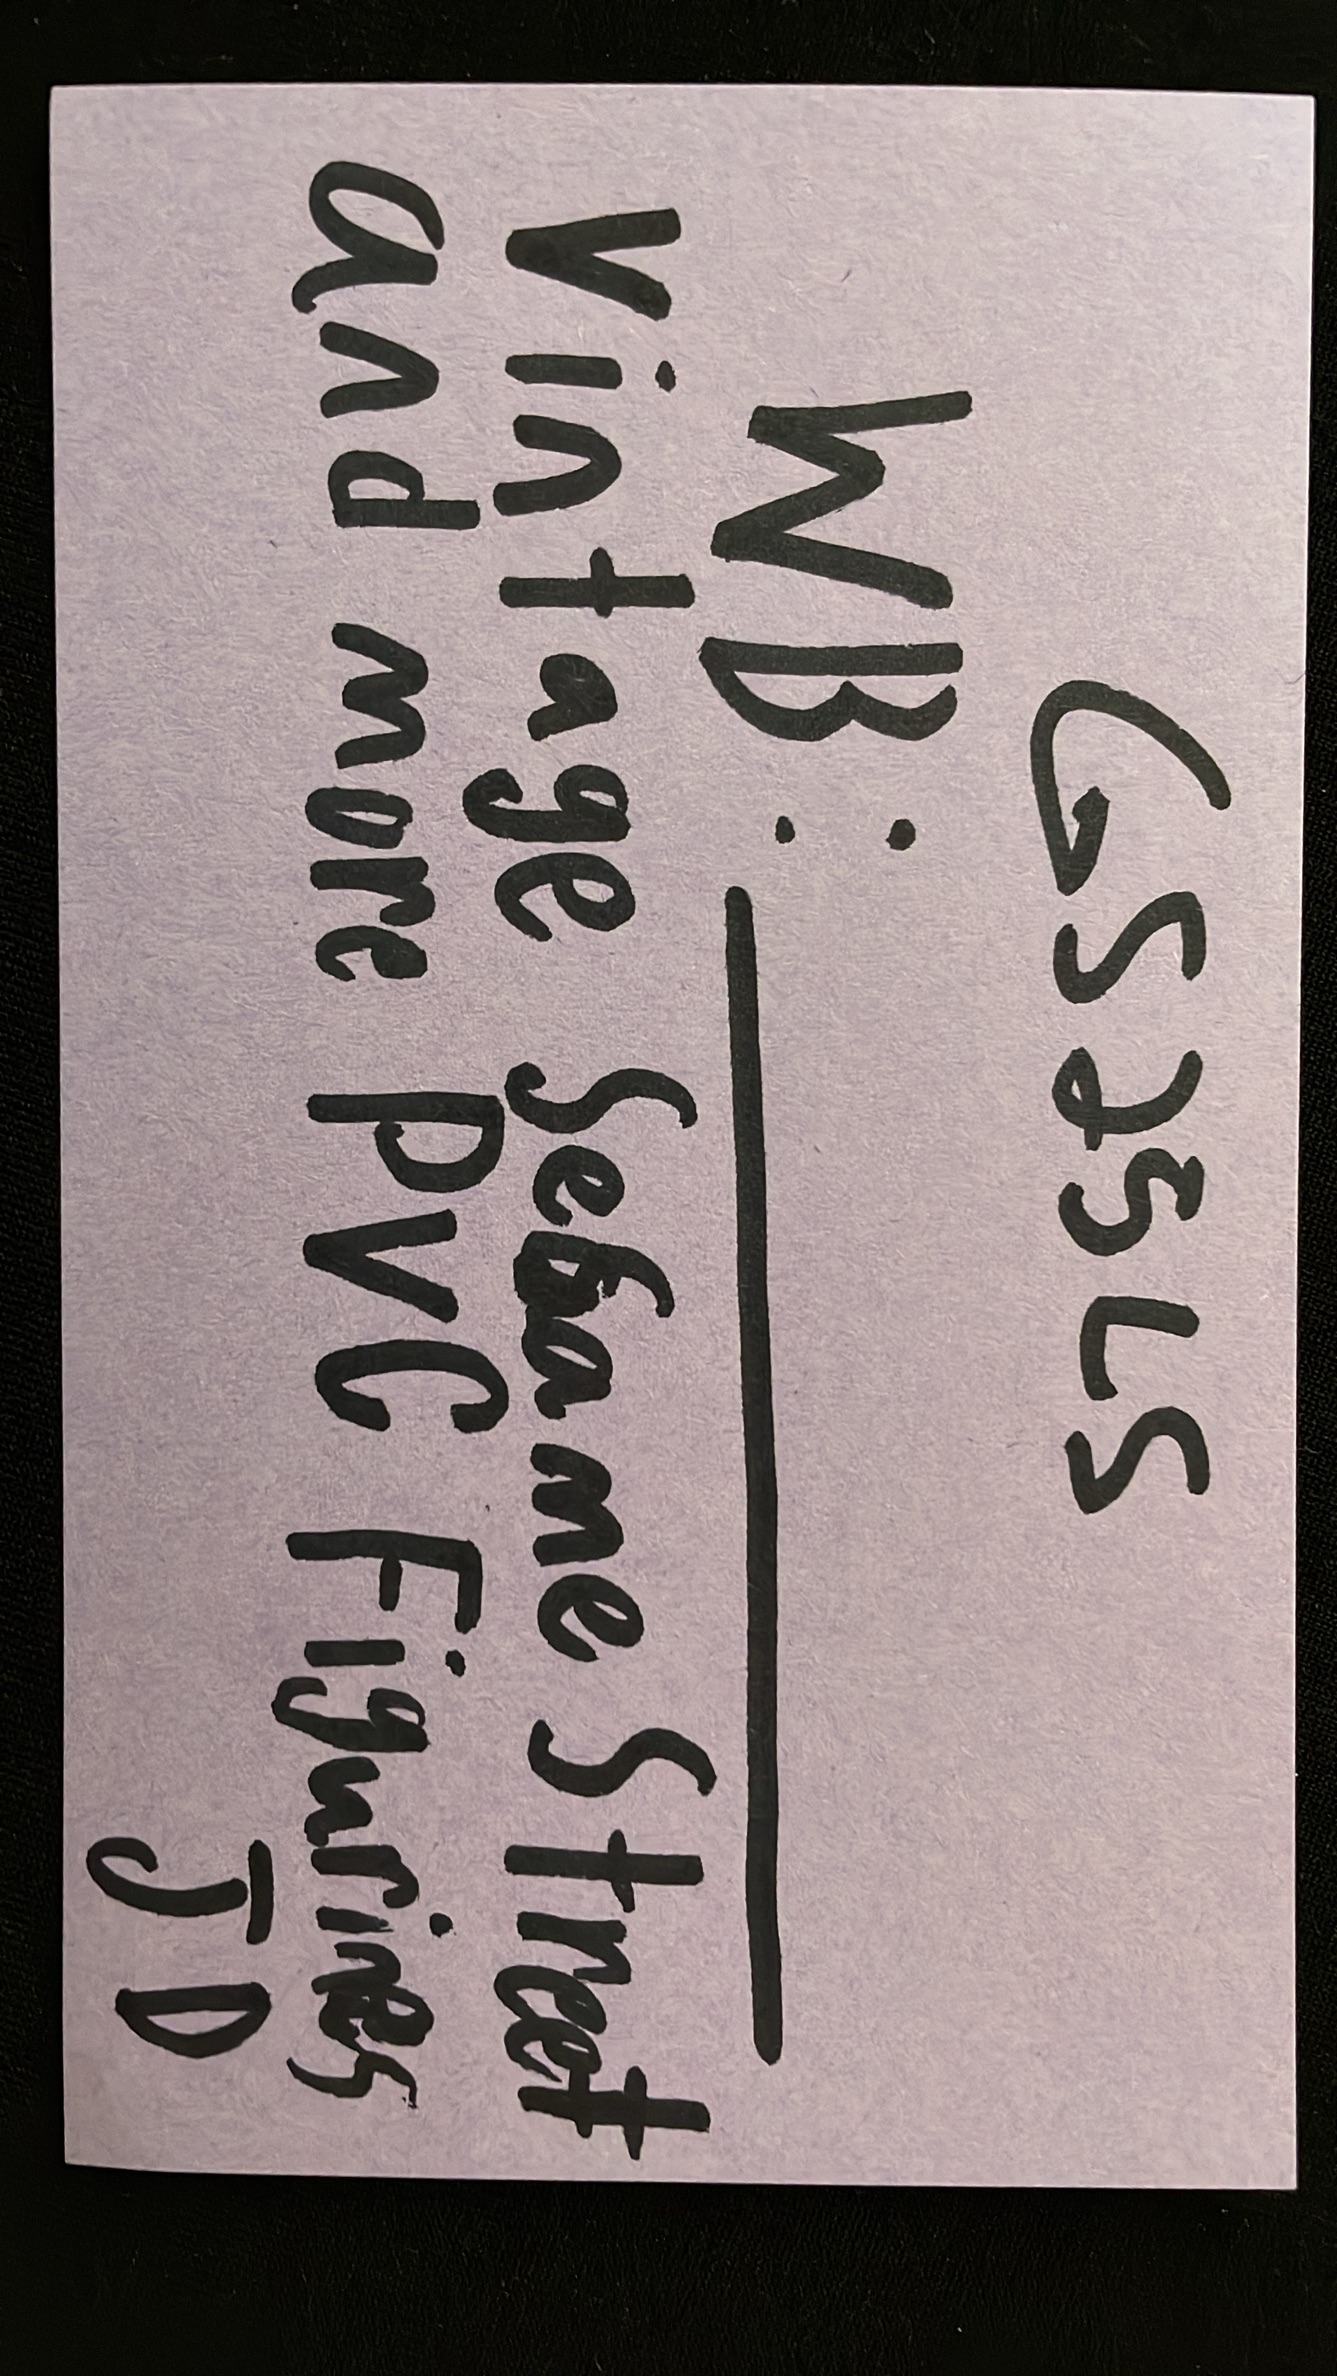 GS25LS
WB: ________
Vintage Sesame Street
and more PVC Figurines
JD